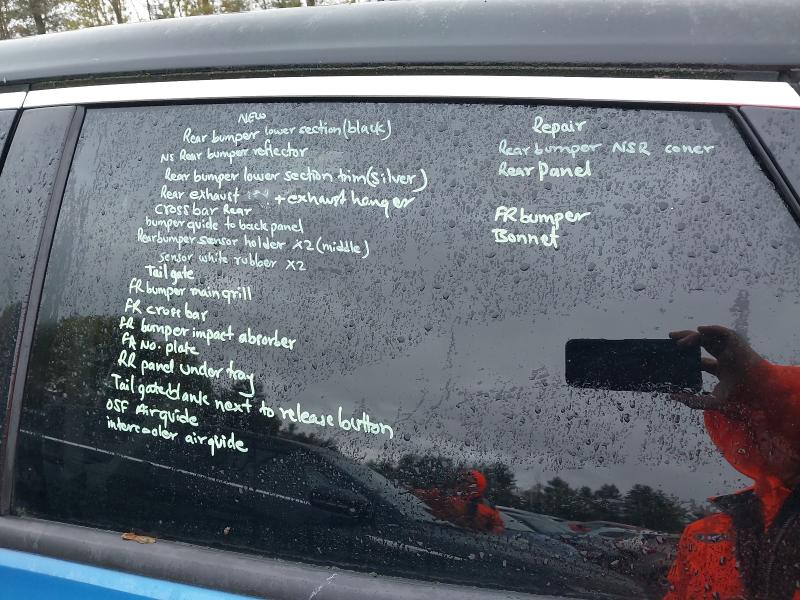 NEW
Rear bumper lower section (black)
NS Rear bumper reflector
Rear bumper lower section trim (silver)
Rear exhaust + exhaust hanger
Cross bar Rear
bumper guide to back panel
Rear bumper sensor holder X2 (middle)
sensor white rubber X2
Tail gate
FR bumper main grill
FR cross bar
FR bumper impact absorber
FR No. plate
RR panel under tray
Tail gate blank next to release button
OSF Airguide
intercooler airguide
Repair
Rear bumper NSR coner
Rear Panel
FR bumper
Bonnet